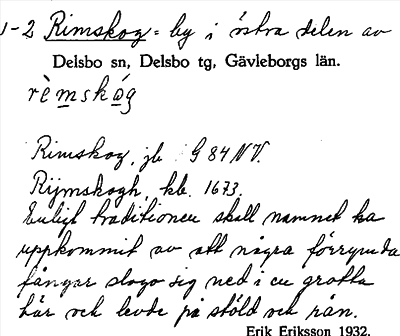 1-2 Rimskog = by i östra delen av
Delsbo sn, Delsbo tg, Gävleborgs län.
rèmskóg
Rimskog, jb G 84 NV.
Rijmskogh, kb. 1673.
Enligt traditionen skall namnet ha
uppkommit av att några förrymda
fångar slogo sig ned i en grotta
här och levde på stöld och rån.
Erik Eriksson 1932.